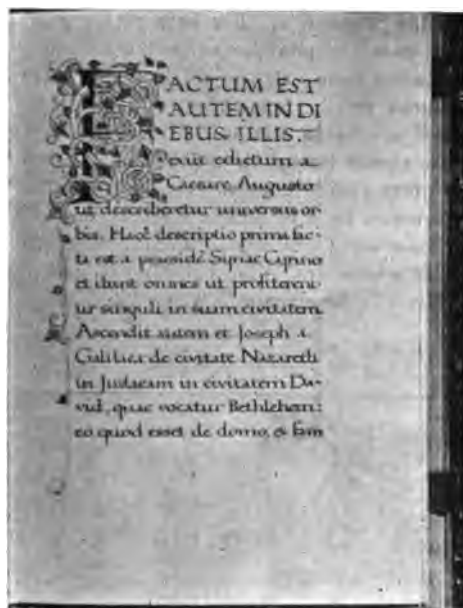 FACTUM EST
AUTEM IN DI
EBUS ILLIS.
exiit edictum a
Caesare Augusto
ut describeretur universus or-
bis. Haec descriptio prima fac-
ta est a praeside Syriae Cyrino
et ibant omnes ut profiteren-
tur singuli in suam civitatem.
Ascendit autem et Joseph a
Galilaea de civitate Nazareth
in Judaeam in civitatem Da-
vid, quae vocatur Bethlehem:
eo quod esset de domo, & fam